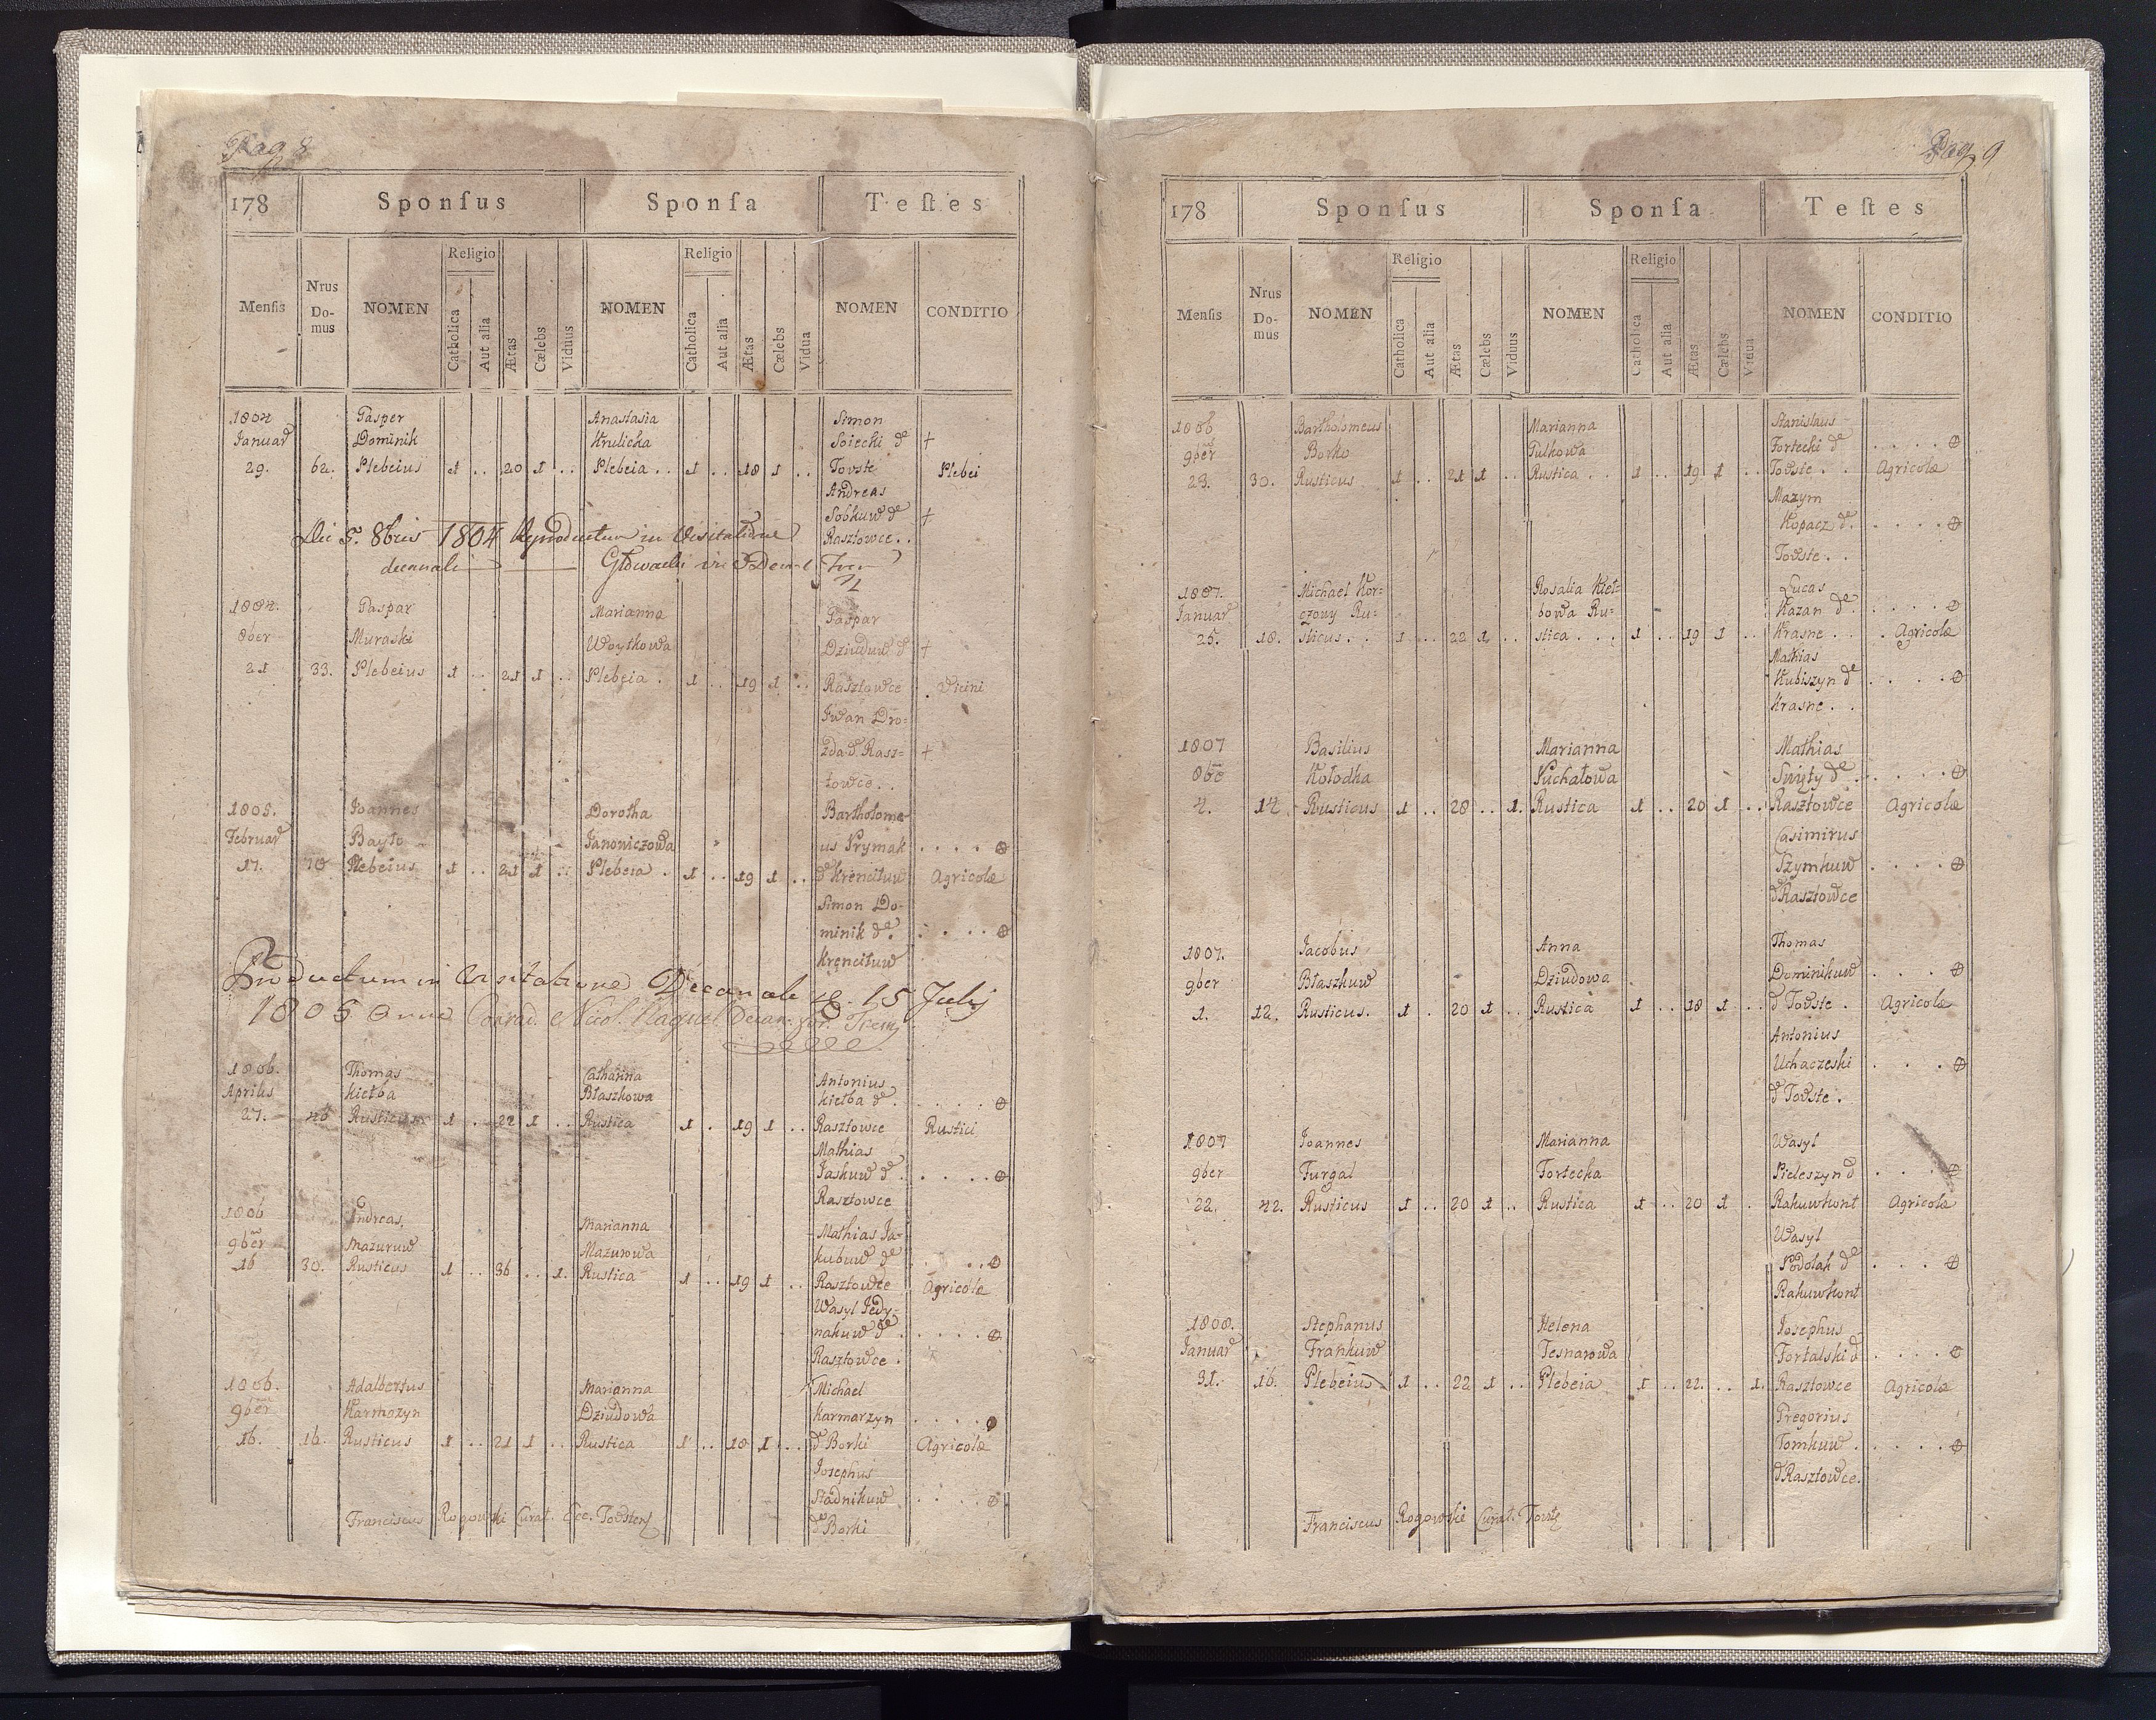 Pag 8
178 Sponſus Sponſa Teſtes
Menſis Nrus Do-mus NOMEN Religio Catholica Aut alia Ætas Cælebs Viduus NOMEN Religio Catholica Aut alia Ætas Cælebs Vidua NOMEN CONDITIO
1804 Gasper Anastasia Simon
Januar Dominik Krulicka Soiecki de +
29. 62. Plebeius 1 .. 20 1 .. Plebeia .. 1 .. 18 1 .. Towste Plebei
Andreas
Sobkuw de +
Rasztowce ..
Die 5. 8bris 1804 in Visitatione
decanali
1804. Gaspar Marianna Gaspar
8ber Muraski Woytkowa Dziuduw d +
21 33. Plebeius 1 .. 21 1 .. Plebeia . 1 .. 19 1 .. Rasztowce . Vicini
Iwan Dro-
zda d. Rasz- +
towce ..
1805. Joannes Dorotha Bartholome-
Februar Bayto Janowiczowa us Prymak . . . .
17. 78 Plebeius 1 .. 21 1 .. Plebeia . 1 .. 19 1 .. d Krencituw Agricolæ
Simon Do-
minik de. . . . .
Krencituw
Productum in Visitatione Decanali d. 15 Julij
1805 Anno Conrad. Nicol. Decan.
1806. Thomas Catharina Antonius
Aprilis Kiełba Błaszkowa Kiełba de . . . . .
27. Rusticus 1 . 22 1 .. Rustica 1 . 19 1 .. Rasztowce Rustici
Mathias
Jaskuw de . . . . .
Rasztowce
1806 Andreas Marianna Mathias Ja-
9ber Mazuruw Mazurowa kubuw de . . . .
16 30. Rusticus 1 .. 36 .. 1. Rustica 1 .. 19 1 .. Rasztowce Agricolæ
Wasyl Jedy-
nakuw de . . . . .
Rasztowce .
1806. Adalbertus Marianna Michael
9ber Karmazyn Dziudowa Karmarzyn . . . .
16. 16. Rusticus 1 .. 21 1 .. Rustica 1 .. 18 1 .. d Borki Agricolæ
Josephus
Stadnikuw . . . .
d Borki
Franciscus Rogowski Curat. Ecc. Towsten
Pag. 9
178 Sponſus Sponſa Teſtes
Menſis Nrus Do-mus NOMEN Religio Catholica Aut alia Ætas Cælebs Viduus NOMEN Religio Catholica Aut alia Ætas Cælebs Vidua NOMEN CONDITIO
1806 Bartholomeus Marianna Stanislaus
9ber Borko Gulkowa Fortecki de . . . .
23. 30. Rusticus 1 .. 21 1 .. Rustica .. 1 .. 19 1 .. Towste .. Agricolæ
Mazym
Kopacz d. . . . .
Towste ..
1807. Michael Kor- Rosalia Kieł- Lucas
Januar czowy Ru- bowa Ru- Kazan de . . . .
25. 18. sticus .. 1 .. 22 1 .. stica ... 1 .. 19 1 .. Krasne .. . Agricolæ
Mathias
Kubiszyn de . . . .
Krasne ..
1807 Basilius Marianna Mathias
8be Kołodka Puchatowa Swięty de . . . .
4. 14 Rusticus 1 .. 28 .. 1. Rustica 1 .. 20 1 .. Rasztowce Agricolæ
Casimirus
Szymkuw . . . .
d Rasztowce
1807. Jacobus Anna Thomas
9ber Błaszkuw Dziudowa Dominikuw . . .
1. 12. Rusticus. 1 . 20 1 .. Rustica 1 .. 18 1 .. d Towste . Agricolæ
Antonius
Uhaczeski . . .
d Towste .
1807 Joannes Marianna Wasyl
9ber Furgal Fortecka Pieleszyn d . . .
22. 42. Rusticus 1 .. 20 1 .. Rustica 1 .. 20 1 . Rakuwkont Agricolæ
Wasyl
Podolak de . . .
Rakuwkont
1808. Stephanus Helena Josephus
Januar Frankuw Tesnarowa Fortalski d . . . .
31. 16. Plebeius 1 .. 22 1 .. Plebeia 1 .. 22. .. 1. Rasztowce Agricolæ
Gregorius
Tomkuw . . . . .
d Rasztowce.
Franciscus Rogowski Curat. Towste